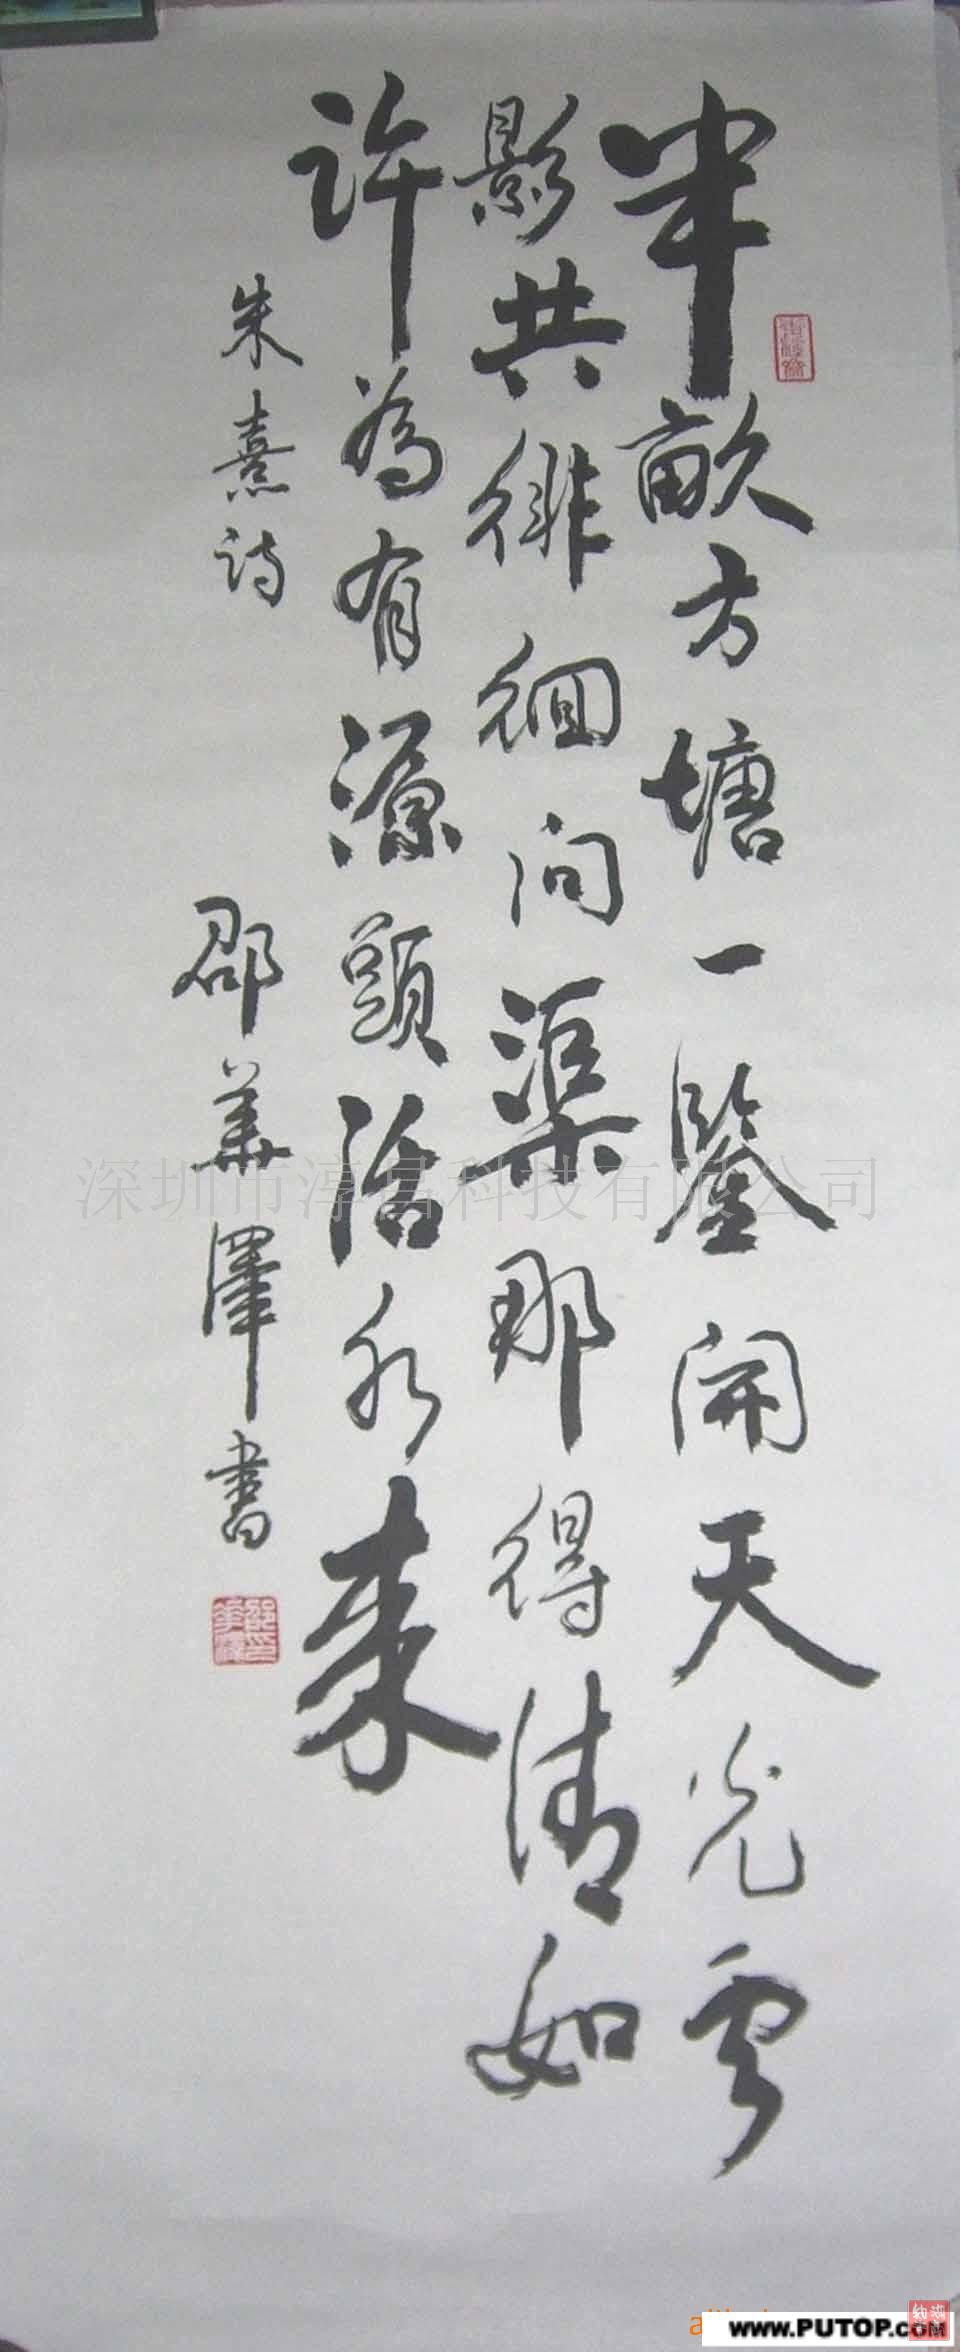 半畝方塘一鑒開天光雲
影共徘徊问渠那得清如
許為有源頭活水来
朱熹诗
邵華澤書
深圳市淳昌科技有限公司
WWW.PUTOP.COM